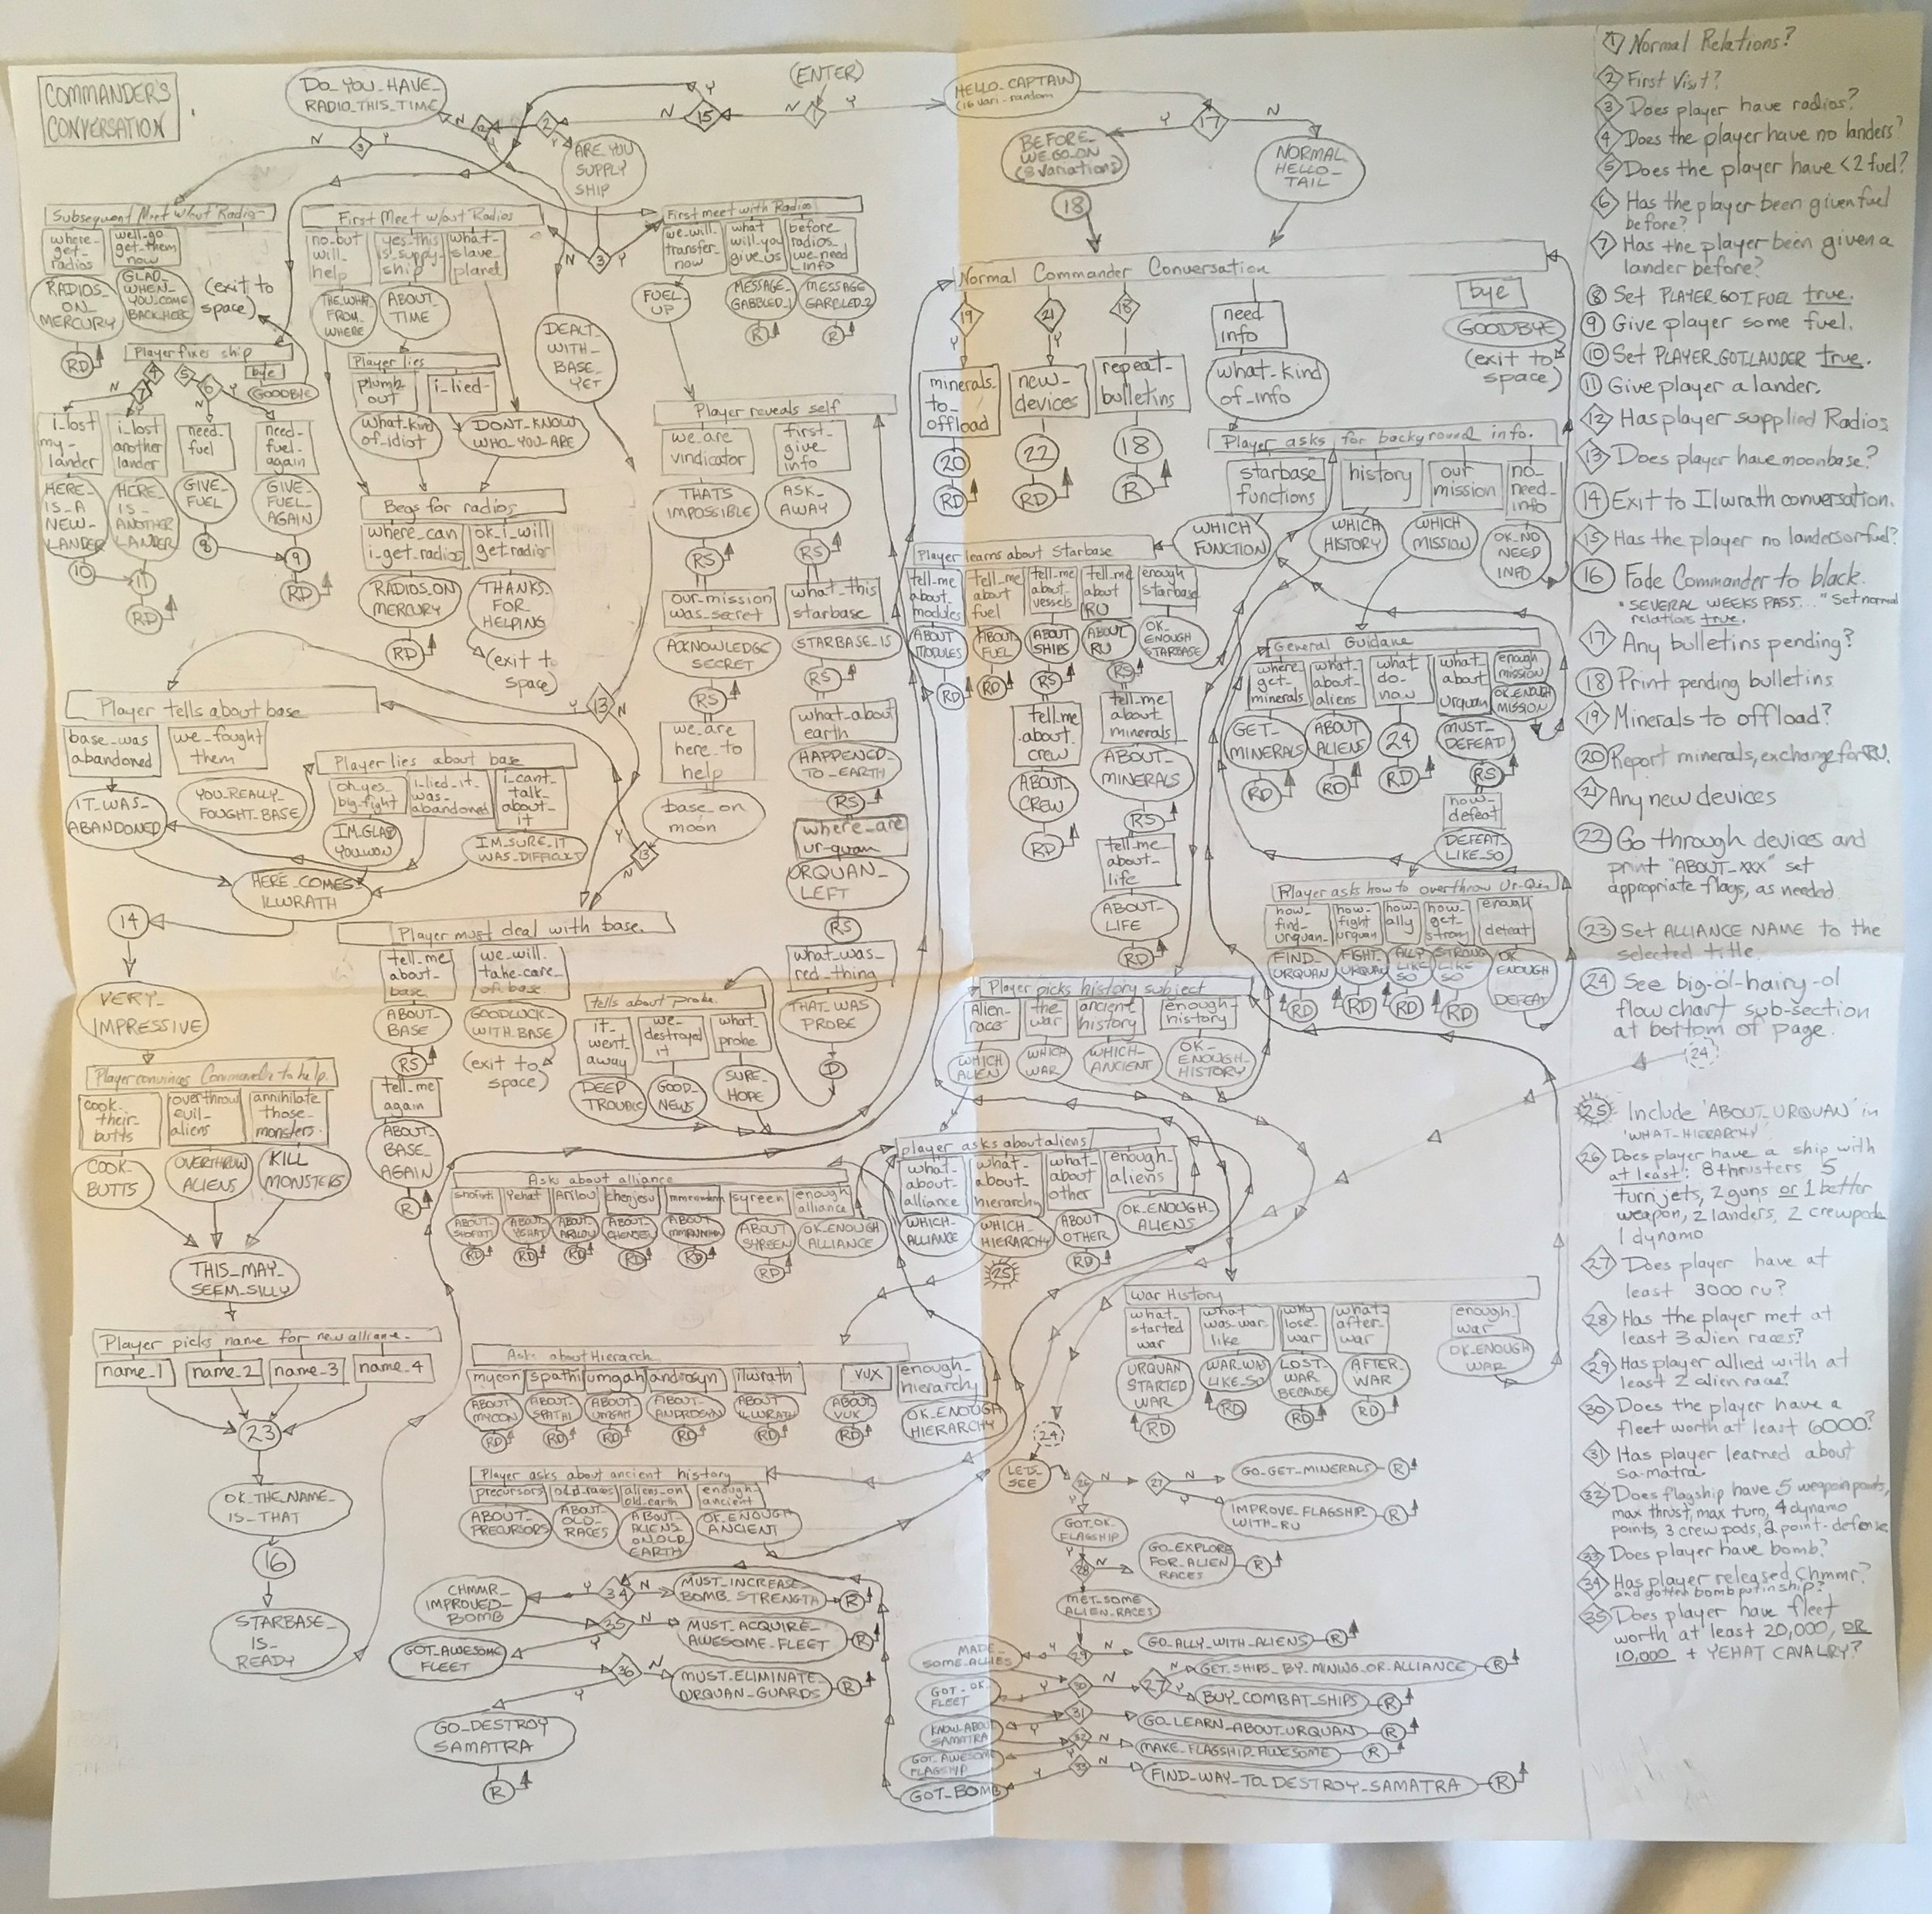 COMMANDER'S
CONVERSATION
(ENTER)
1
Y
N
15
Y
N
2
Y
12
N
DO_YOU_HAVE_
RADIO_THIS_TIME
3
N
Y
ARE_YOU
SUPPLY
SHIP
HELLO_CAPTAIN
(16 vari - random
17
Y
N
BEFORE_
WE_GO_ON
(8 variations)
18
NORMAL
HELLO_
TAIL
Subsequent Meet w/out Radio
where_
get_
radios
well-go
get_them
now
RADIOS_
ON_
MERCURY
RD
GLAD_
WHEN_
YOU_COME
BACK_HERE
(exit to
space)
First Meet w/out Radios
no_but
will_
help
yes_this
is_supply_
ship
what_
slave_
planet
THE_WHAT_
FROM_
WHERE
ABOUT_
TIME
N
3
Y
First meet with Radios
we_will
transfer_
now
what
will_you
give_us
before_
radios_
we_need
info
FUEL_
UP
MESSAGE_
GARBLED_1
R
MESSAGE
GARBLED_2
R
DEALT_
WITH_
BASE_
YET
Player fixes ship
4
5
6
7
N
Y
bye
GOODBYE
i_lost
my_
lander
i_lost
another
lander
need_
fuel
need_
fuel_
again
HERE_
IS_A
NEW_
LANDER
HERE_
IS_
ANOTHER
LANDER
GIVE_
FUEL
GIVE_
FUEL_
AGAIN
10
11
RD
8
9
RD
Player lies
plumb
out
i_lied_
what_kind
of_idiot
DONT_KNOW
WHO_YOU_ARE
Begs for radios
where_can
i_get_radio
ok_i_will
get_radio
RADIOS_ON
MERCURY
RD
THANKS_
FOR_
HELPING
(exit to
space)
Player reveals self
we_are
vindicator
first_
give
info
THATS_
IMPOSSIBLE
RS
ASK_
AWAY
RS
our_mission
was_secret
what_this
starbase
ACKNOWLEDGE
SECRET
RS
STARBASE_IS
RS
we_are
here_to
help
what_about
earth
HAPPENED
_TO_EARTH
RS
base_on
moon
where_are
ur-quan
URQUAN_
LEFT
RS
what_was_
red_thing
THAT_WAS
PROBE
D
13
Y
N
13
Y
N
Player tells about base
base_was
abandoned
we_fought
them
IT_WAS_
ABANDONED
YOU_REALLY_
FOUGHT_BASE
Player lies about base
oh_yes_
big_fight
i_lied_it_
was_
abandoned
i_cant_
talk_
about_
it
IM_GLAD
YOU_WON
IM_SURE_IT
WAS_DIFFICULT
HERE_COMES
ILWRATH
14
VERY_
IMPRESSIVE
Player must deal with base
tell_me
about_
base
we_will_
take-care_
of_base
ABOUT_
BASE
RS
GOODLUCK_
WITH_BASE
(exit to
space)
tell_me
again
ABOUT_
BASE_
AGAIN
R
tells about probe
it_
went_
away
we_
destroyed
it
what_
probe
DEEP
TROUBLE
GOOD_
NEWS
SURE_
HOPE
Player convinces Commander to help
cook_
their_
butts
overthrow
evil_
aliens
annihilate
those_
monsters
COOK_
BUTTS
OVERTHROW
ALIENS
KILL
MONSTERS
THIS_MAY_
SEEM_SILLY
Player picks name for new alliance.
name_1
name_2
name_3
name_4
23
OK_THE_NAME_
IS_THAT
16
STARBASE_
IS_
READY
Normal Commander Conversation
19
Y
21
Y
18
Y
need
info
bye
minerals_
to_
offload
new_
devices
repeat_
bulletins
what_kind
of_info
GOODBYE
(exit to
space)
20
RD
22
RD
18
R
Player asks for background info.
starbase
functions
history
our
mission
no_
need_
info
WHICH
FUNCTION
WHICH
HISTORY
WHICH
MISSION
OK_NO
NEED
INFO
Player learns about Starbase
tell_me
about_
modules
tell_me
about
fuel
tell_me
about_
vessels
tell_me
about
RU
enough
starbase
ABOUT
MODULES
RD
ABOUT
FUEL
RD
ABOUT
SHIPS
RS
ABOUT
RU
RS
OK_
ENOUGH
STARBASE
tell_me
about_
crew
ABOUT_
CREW
RD
tell_me
about
minerals
ABOUT_
MINERALS
RS
tell_me
about_
life
ABOUT_
LIFE
RD
General Guidance
where_
get_
minerals
what_
about_
aliens
what
do_
now
what_
about
urquan
enough
mission
GET_
MINERALS
RD
ABOUT
ALIENS
RD
24
RD
MUST_
DEFEAT
RS
OK_ENOUGH
MISSION
how_
defeat
DEFEAT_
LIKE_SO
Player asks how to overthrow Ur-Qun
how_
find_
urquan
how_
fight
urquan
how_
ally
how_
get_
strong
enough
defeat
FIND_
URQUAN
RD
FIGHT_
URQUAN
RD
ALLY
LIKE
SO
RD
STRONG
LIKE_
SO
RD
OK
ENOUGH
DEFEAT
Player picks history subject
Alien_
race
the
war
ancient
history
enough_
history
WHICH
ALIEN
WHICH
WAR
WHICH_
ANCIENT
OK_
ENOUGH_
HISTORY
player asks about aliens
what_
about_
alliance
what_
about_
hierarchy
what_
about
other
enough_
aliens
WHICH_
ALLIANCE
WHICH_
HIERARCHY
25
ABOUT
OTHER
RD
OK_ENOUGH_
ALIENS
Asks about alliance
shofixti
Yehat
Arilou
chenjesu
mmrnmhrm
syreen
enough
alliance
ABOUT_
SHOFIXTI
RD
ABOUT_
YEHAT
RD
ABOUT_
ARILOU
RD
ABOUT_
CHENJESU
RD
ABOUT
MMRNMHRM
RD
ABOUT
SYREEN
RD
OK_ENOUGH
ALLIANCE
Asks about Hierarch
mycon
spathi
umgah
androsyn
ilwrath
vux
enough_
hierarchy
ABOUT
MYCON
RD
ABOUT_
SPATHI
RD
ABOUT_
UMGAH
RD
ABOUT_
ANDROSYN
RD
ABOUT
ILWRATH
RD
ABOUT
VUX
RD
OK_ENOUGH
HIERARCHY
Player asks about ancient history
precursors
old_races
aliens_on
old_earth
enough_
ancient
ABOUT_
PRECURSORS
ABOUT_
OLD_
RACES
ABOUT_
ALIENS_
ON_OLD_
EARTH
OK_ENOUGH
ANCIENT
War History
what_
started
war
what
was_war_
like
why
lose_
war
what_
after_
war
enough_
war
URQUAN
STARTED
WAR
RD
WAR_WAS
LIKE_SO
RD
LOST_
WAR_
BECAUSE
RD
AFTER_
WAR
RD
OK_ENOUGH
WAR
24
LETS_
SEE
26
N
27
N
GO_GET_MINERALS
R
Y
IMPROVE_FLAGSHIP_
WITH_RU
R
Y
GOT_OK_
FLAGSHIP
28
N
GO_EXPLORE
FOR_ALIEN
RACES
R
MET_SOME
ALIEN_RACES
29
Y
N
MADE_
SOME_ALLIES
GO_ALLY_WITH_ALIENS
R
30
Y
N
27
N
GET_SHIPS_BY_MINING_OR_ALLIANCE
R
Y
GOT_OK_
FLEET
BUY_COMBAT_SHIPS
R
31
Y
KNOW_ABOUT
SAMATRA
GO_LEARN_ABOUT_URQUAN
R
32
Y
N
GOT_AWESOME
FLAGSHIP
MAKE_FLAGSHIP_AWESOME
R
33
Y
N
GOT_BOMB
FIND_WAY_TO_DESTROY_SAMATRA
R
34
Y
N
CHMMR_
IMPROVED_
BOMB
MUST_INCREASE_
BOMB_STRENGTH
R
35
Y
N
GOT_AWESOME
FLEET
MUST_ACQUIRE_
AWESOME_FLEET
R
36
Y
N
MUST_ELIMINATE_
URQUAN_GUARDS
R
GO_DESTROY
SAMATRA
R
1 Normal Relations?
2 First Visit?
3 Does player have radios?
4 Does the player have no landers?
5 Does the player have <2 fuel?
6 Has the player been given fuel
before?
7 Has the player been given a
lander before?
8 Set PLAYER_GOT_FUEL true.
9 Give player some fuel.
10 Set PLAYER_GOT_LANDER true.
11 Give player a lander.
12 Has player supplied Radios
13 Does player have moonbase?
14 Exit to Ilwrath conversation.
15 Has the player no landers or fuel?
16 Fade Commander to black.
"SEVERAL WEEKS PASS..." Set normal
relations true.
17 Any bulletins pending?
18 Print pending bulletins
19 Minerals to offload?
20 Report minerals, exchange for RU.
21 Any new devices
22 Go through devices and
print "ABOUT_XXX" set
appropriate flags, as needed.
23 Set ALLIANCE NAME to the
selected title.
24 See big-ol-hairy-ol
flow chart sub-section
at bottom of page.
24
25 Include 'ABOUT_URQUAN' in
'WHAT_HIERARCHY'
26 Does player have a ship with
at least: 8 thrusters 5
turn jets, 2 guns or 1 better
weapon, 2 landers, 2 crewpods
1 dynamo
27 Does player have at
least 3000 ru?
28 Has the player met at
least 3 alien races?
29 Has player allied with at
least 2 alien races?
30 Does the player have a
fleet worth at least 6000?
31 Has player learned about
sa-matra
32 Does flagship have 5 weapon points,
max thrust, max turn, 4 dynamo
points, 3 crew pods, 2 point-defense
33 Does player have bomb?
34 Has player released Chmmr?
and gotten bomb put in ship?
35 Does player have fleet
worth at least 20,000, OR
10,000 + YEHAT CAVALRY?